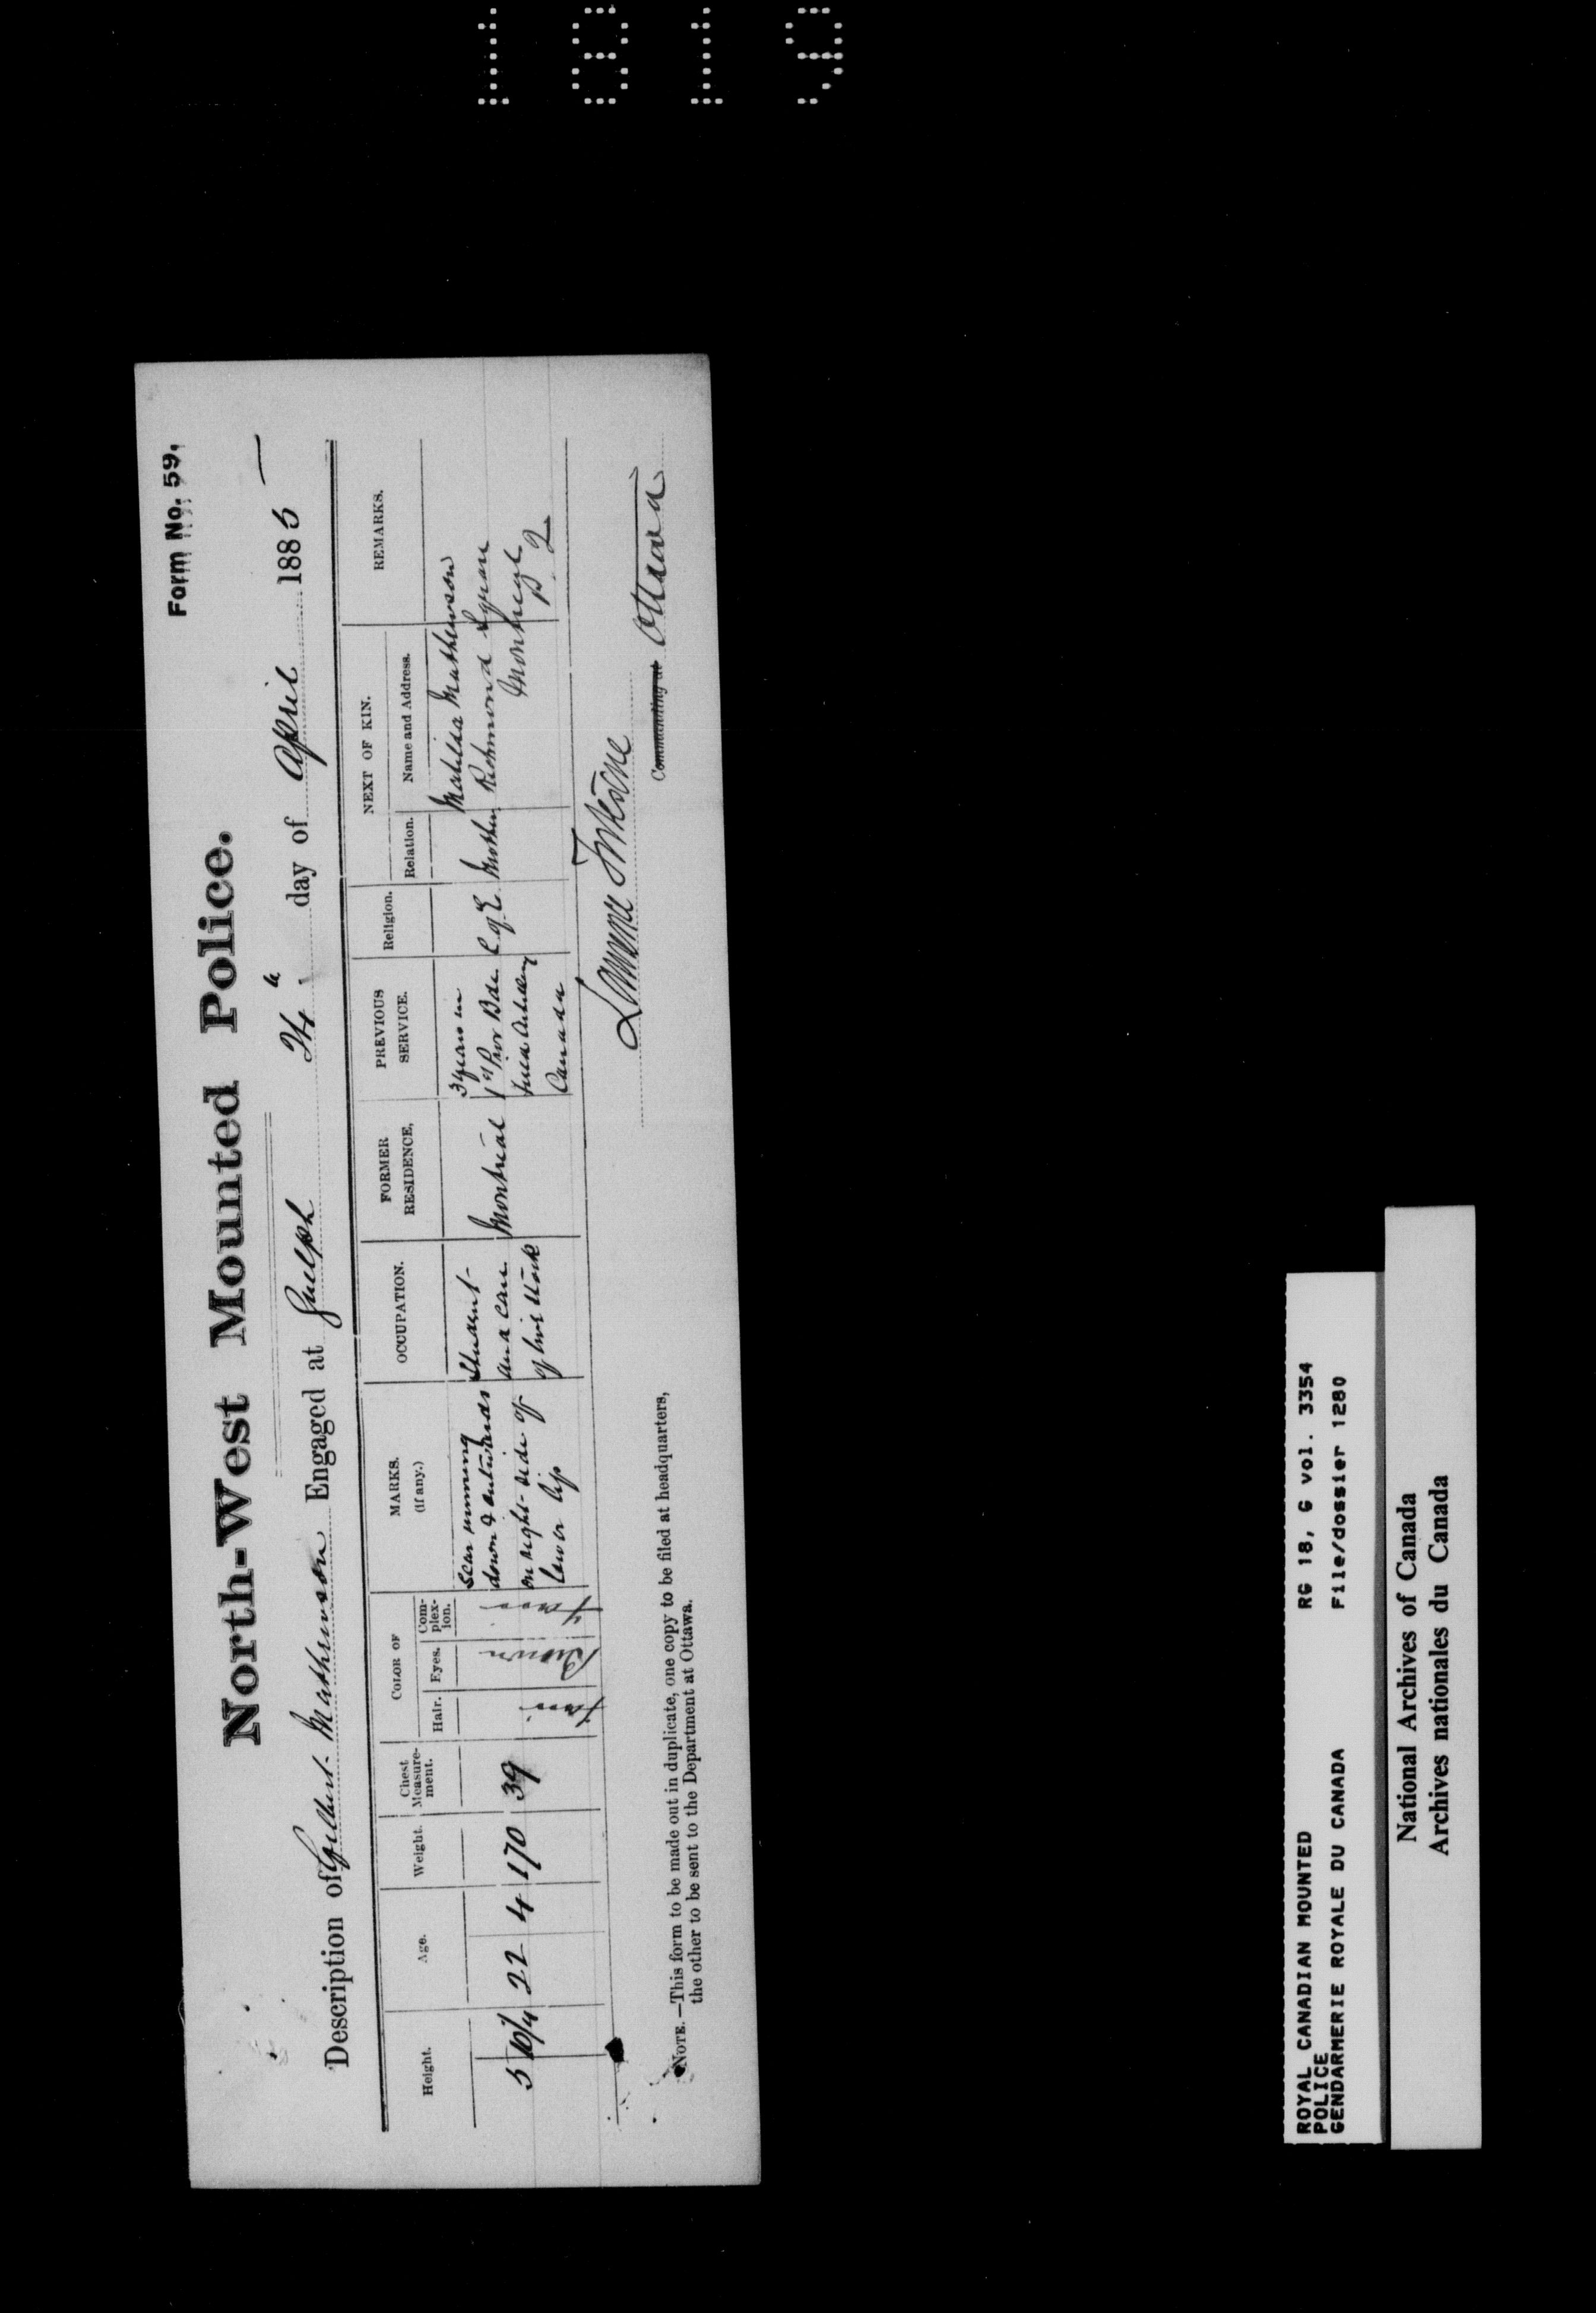 Form No. 59.
North-West Mounted Police.
Description of Gilbert Mathewson Engaged at Guelph 24th day of April 1885
Height. Age. Weight. Chest Measure-ment. COLOR OF Hair. Eyes. Com-plex-ion. MARKS. (if any.) OCCUPATION. FORMER RESIDENCE. PREVIOUS SERVICE. Religion. NEXT OF KIN. Relation. Name and Address. REMARKS.
5 10¼ 22 4 170 39 Fair Brown Fair
scar running
down & outwards
on right side of
lower lip
Student
and care
of live stock
Montreal
3 years in
1st Prov Bde
Field Artillery
Canada
C of E
Mother
Matilda Mathewson
Richmond Square
Montreal
P. Q
Commanding at Ottawa
NOTE.—This form to be made out in duplicate, one copy to be filed at headquarters,
the other to be sent to the Department at Ottawa.
ROYAL CANADIAN MOUNTED
POLICE
GENDARMERIE ROYALE DU CANADA
RG 18, G vol. 3354
File/dossier 1280
National Archives of Canada
Archives nationales du Canada